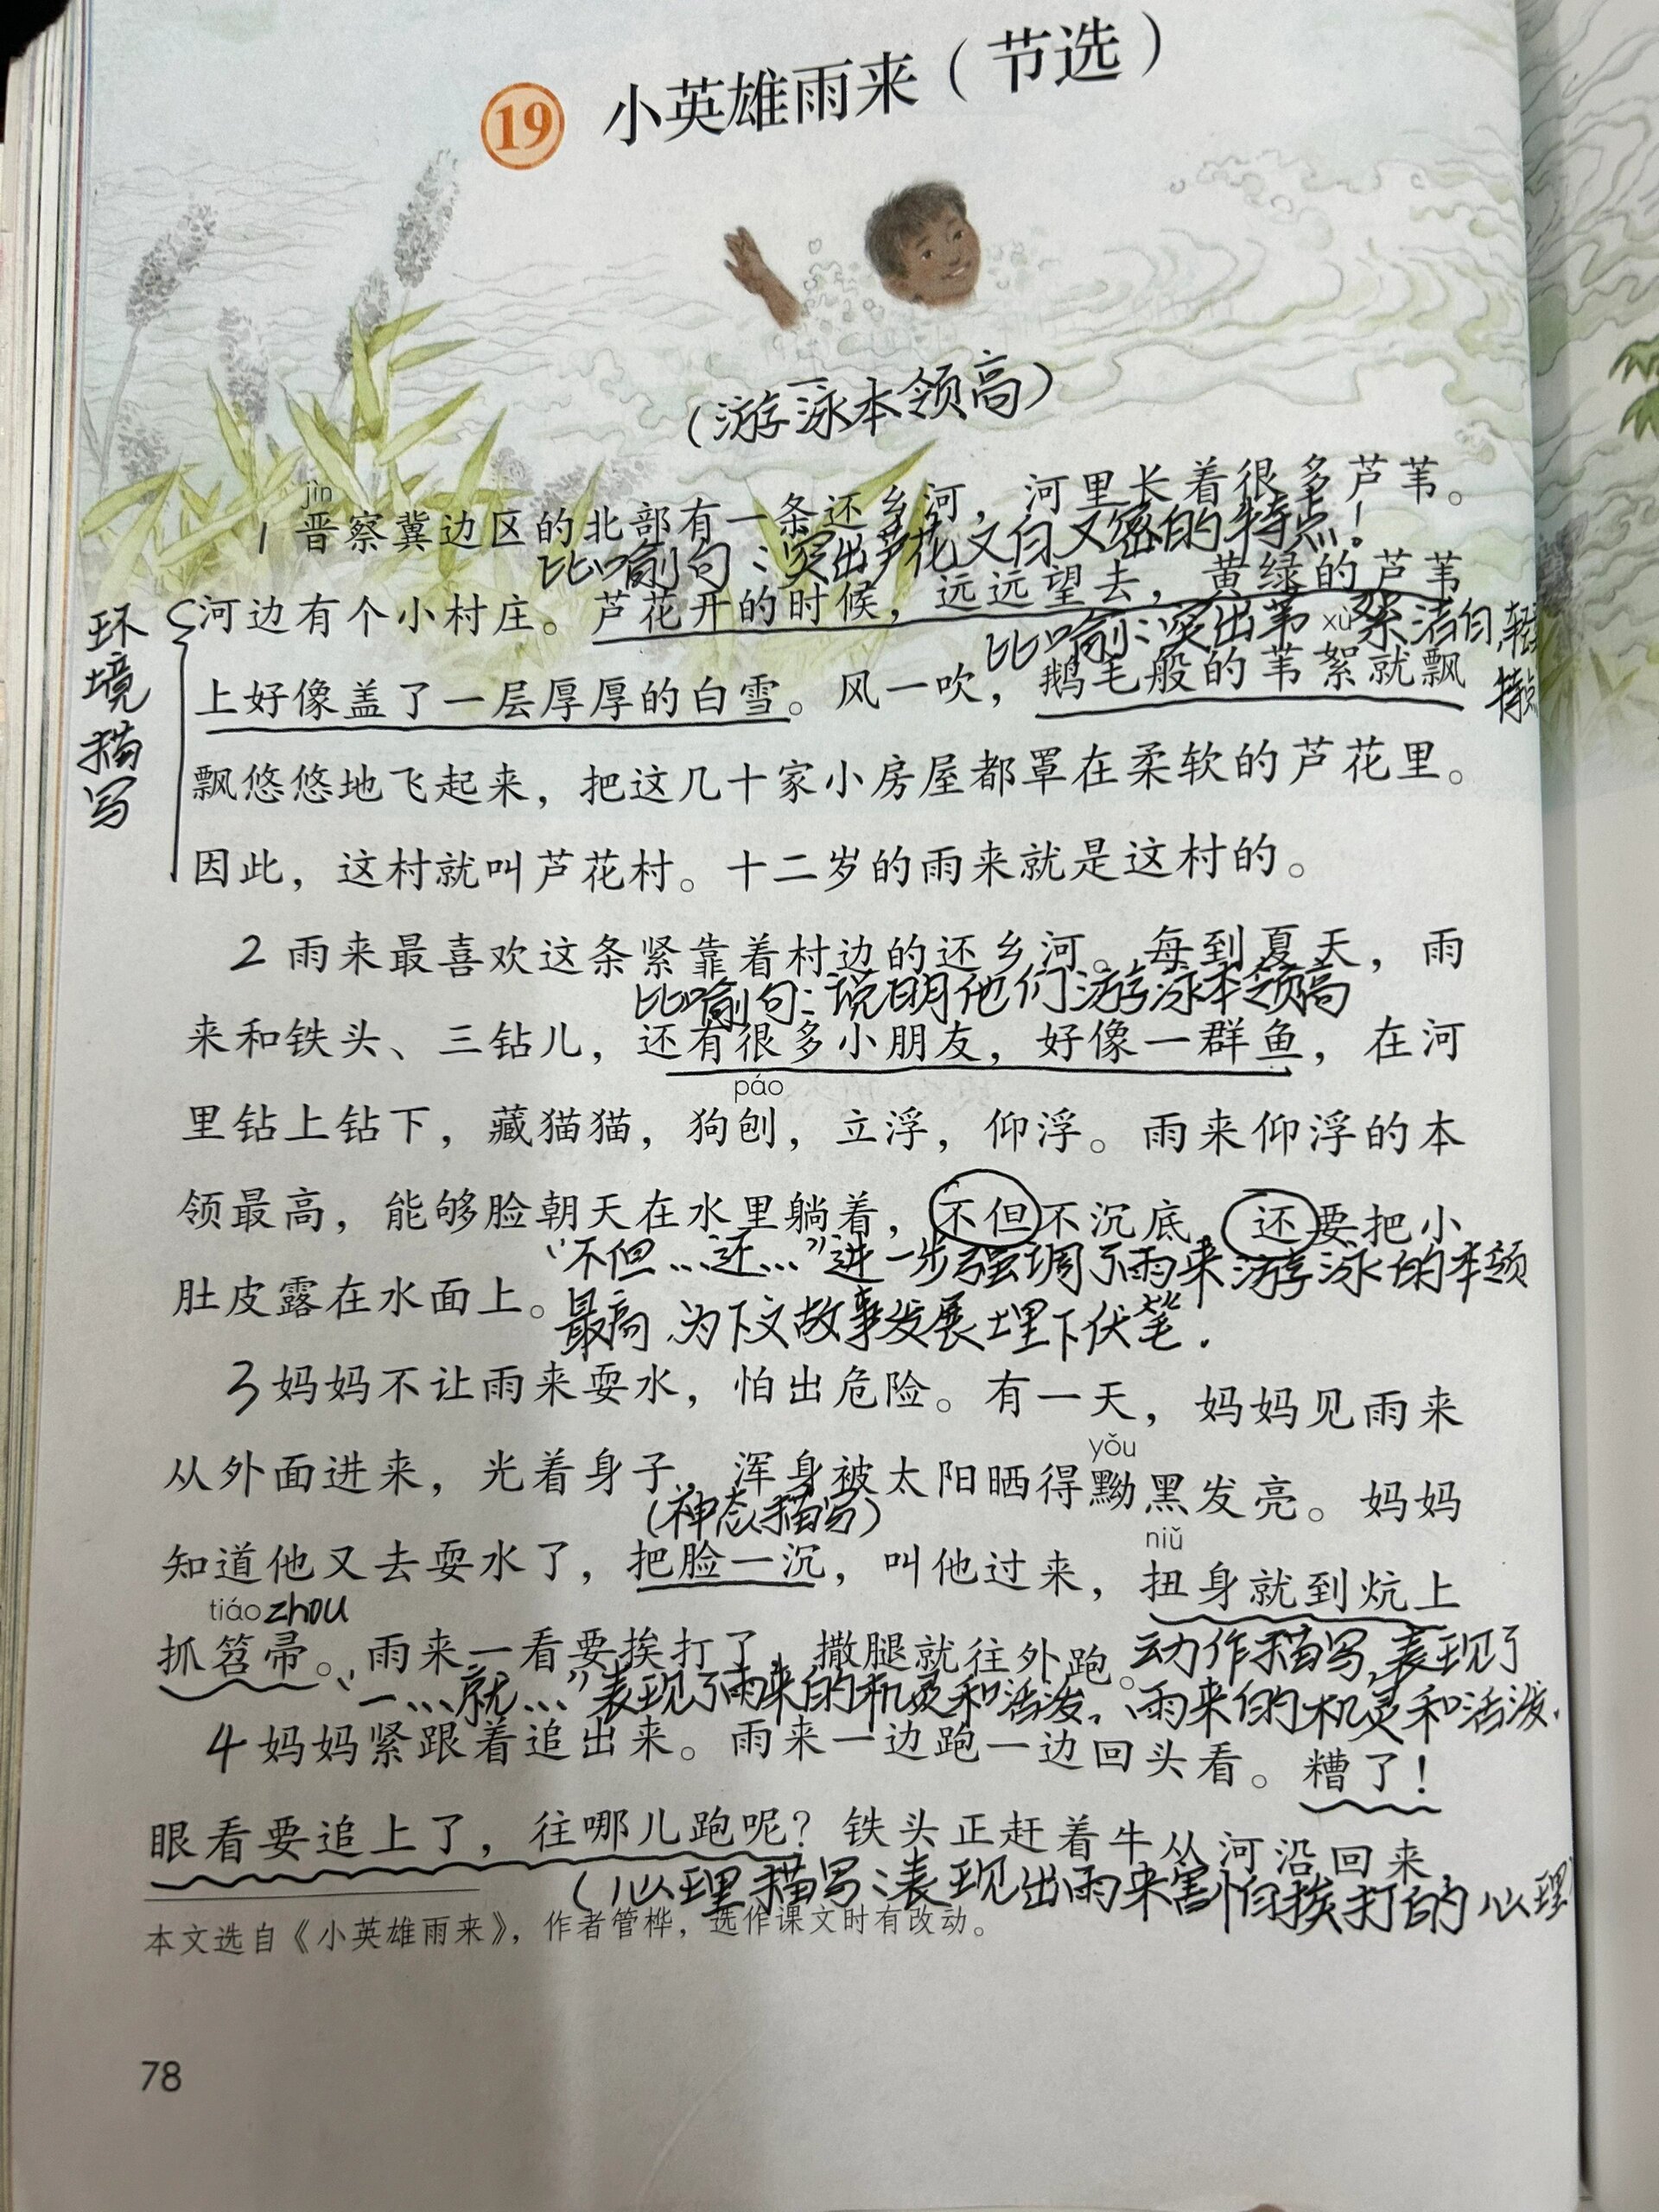 19 小英雄雨来（节选）
（游泳本领高）
jìn
1 晋察冀边区的北部有一条还乡河，河里长着很多芦苇。
比喻句：突出芦花又白又密的特点！
河边有个小村庄。芦花开的时候，远远望去，黄绿的芦苇
比喻：突出苇絮洁白、轻
xù
特点
上好像盖了一层厚厚的白雪。风一吹，鹅毛般的苇絮就飘
飘悠悠地飞起来，把这几十家小房屋都罩在柔软的芦花里。
因此，这村就叫芦花村。十二岁的雨来就是这村的。
环境描写
2 雨来最喜欢这条紧靠着村边的还乡河。每到夏天，雨
比喻句：说明他们游泳本领高
来和铁头、三钻儿，还有很多小朋友，好像一群鱼，在河
páo
里钻上钻下，藏猫猫，狗刨，立浮，仰浮。雨来仰浮的本
领最高，能够脸朝天在水里躺着，不但不沉底，还要把小
“不但…还…”进一步强调了雨来游泳的本领
肚皮露在水面上。
最高，为下文故事发展埋下伏笔.
3 妈妈不让雨来耍水，怕出危险。有一天，妈妈见雨来
yǒu
从外面进来，光着身子，浑身被太阳晒得黝黑发亮。妈妈
（神态描写）
niǔ
知道他又去耍水了，把脸一沉，叫他过来，扭身就到炕上
tiáo zhou
抓笤帚。雨来一看要挨打了，撒腿就往外跑。
动作描写，表现了
雨来的机灵和活泼.
“一…就…”表现了雨来的机灵和活泼.
4 妈妈紧跟着追出来。雨来一边跑一边回头看。糟了！
眼看要追上了，往哪儿跑呢？铁头正赶着牛从河沿回来，
（心理描写：表现出雨来害怕挨打的心理
本文选自《小英雄雨来》，作者管桦，选作课文时有改动。
78